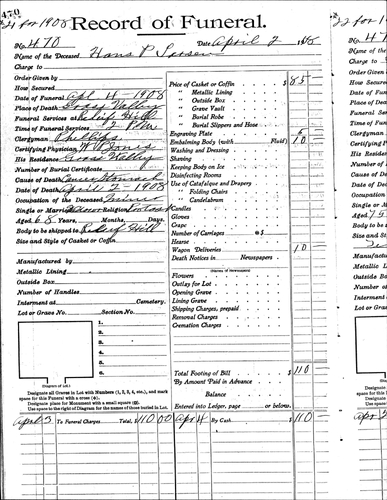 470
4 for 1908
Record of Funeral.
No. 470 Date April 2 1908
Name of the Deceased Hans P
Charge to
Order Given by
How Secured
Date of Funeral Apl 4 1908
Place of Death Grass Valley
Funeral Services at Relief Hill
Time of Funeral Services 2 P.m.
Clergyman Phillips
Certifying Physician W. C. Jones
His Residence Grass Valley
Number of Burial Certificate
Cause of Death Cancer Stomach
Date of Death April 2 - 1908
Occupation of the Deceased Miner
Single or Married Religion
Aged 68 Years, Months, Days.
Body to be shipped to Relief Hill
Size and Style of Casket or Coffin
Manufactured by
Metallic Lining
Outside Box
Number of Handles
Interment at Cemetery.
Lot or Grave No. Section No.
1.
2.
3.
4.
5.
6.
(Diagram of Lot.)
Designate all Graves in Lot with Numbers (1, 2, 3, 4, etc.), and mark
space for this Funeral with a cross (+).
Designate place for Monument with a small square (□).
Use space to the right of Diagram for the names of those buried in Lot.
Price of Casket or Coffin $ 85
" Metallic Lining
" Outside Box
" Grave Vault
" Burial Robe
" Burial Slippers and Hose
Engraving Plate 5
Embalming Body (with Fluid) 10
Washing and Dressing
Shaving
Keeping Body on Ice
Disinfecting Rooms
Use of Catafalque and Drapery
" Folding Chairs
" Candelabrum
Candles
Gloves
Crape
Number of Carriages @ $
Hearse
Wagon Deliveries 10
Death Notices in Newspapers
(Names of Newspapers)
Flowers
Outlay for Lot
Opening Grave
Lining Grave
Shipping Charges, prepaid
Removal Charges
Cremation Charges
Total Footing of Bill $ 110
By Amount Paid in Advance
Balance
Entered into Ledger, page or below.
April 2 To Funeral Charges Total, $ 110 00 Apr 4 By Cash $ 110
for 1
No. 47
Name of the
Charge to
Order Give
How Secur
Date of Fu
Place of De
Funeral Se
Time of Fu
Clergyman
Certifying
His Reside
Number of
Cause of De
Date of Dea
Occupation
Single or M
Aged 75
Body to be
Size and St
Manufa
Metallic
Outside
Number
Intermen
Lot or Gr
Designate
space for this
Designate
Use space